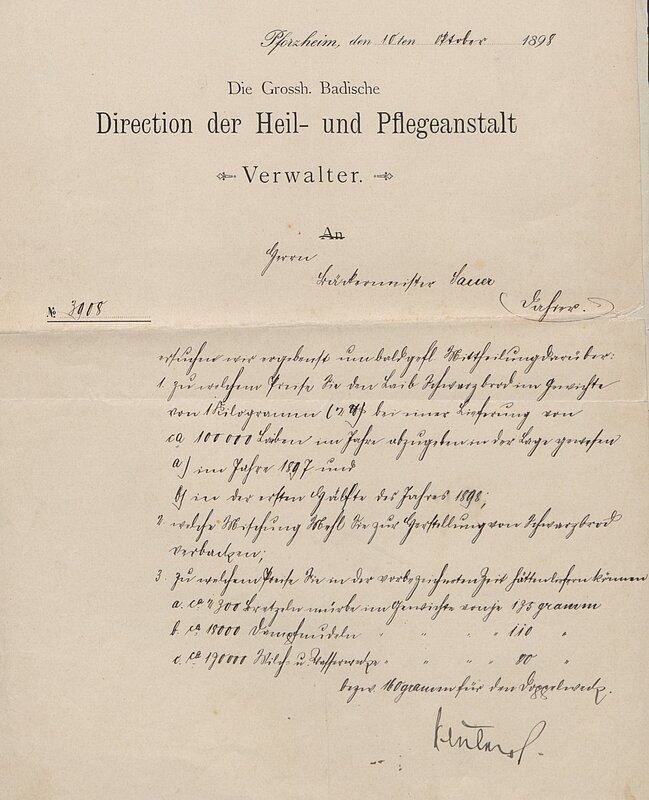 Pforzheim, den 10ten Oktober 1898
Die Grossh. Badische
Direction der Heil- und Pflegeanstalt
Verwalter.
An
Herrn
Bäckermeister Sauer
Dahier.
№ 3908
ersuchen wir ergebenst um baldgefl. Mittheilung darüber:
1. zu welchem Preise Sie den Laib Schwarzbrod im Gewichte
von 1 Kilogramm (2 ℔) bei einer Lieferung von
ca 100000 Laiben im Jahre abzugeben in der Lage gewesen
a) im Jahre 1897 und
b) in der ersten Hälfte des Jahres 1898;
2. welche Mischung Mehl Sie zur Herstellung von Schwarzbrod
verbacken;
3. zu welchem Preise Sie in der vorbezeichneten Zeit hätten liefern können
a. ca 2300 Bretzeln mürbe im Gewichte von je 125 gramm
b. ca 18000 Dampfnudeln " " " " 110 "
c. ca 190000 Milch- u. Wasserwecke " " " " 80 "
bezw. 160 gramm für den Doppelweck.